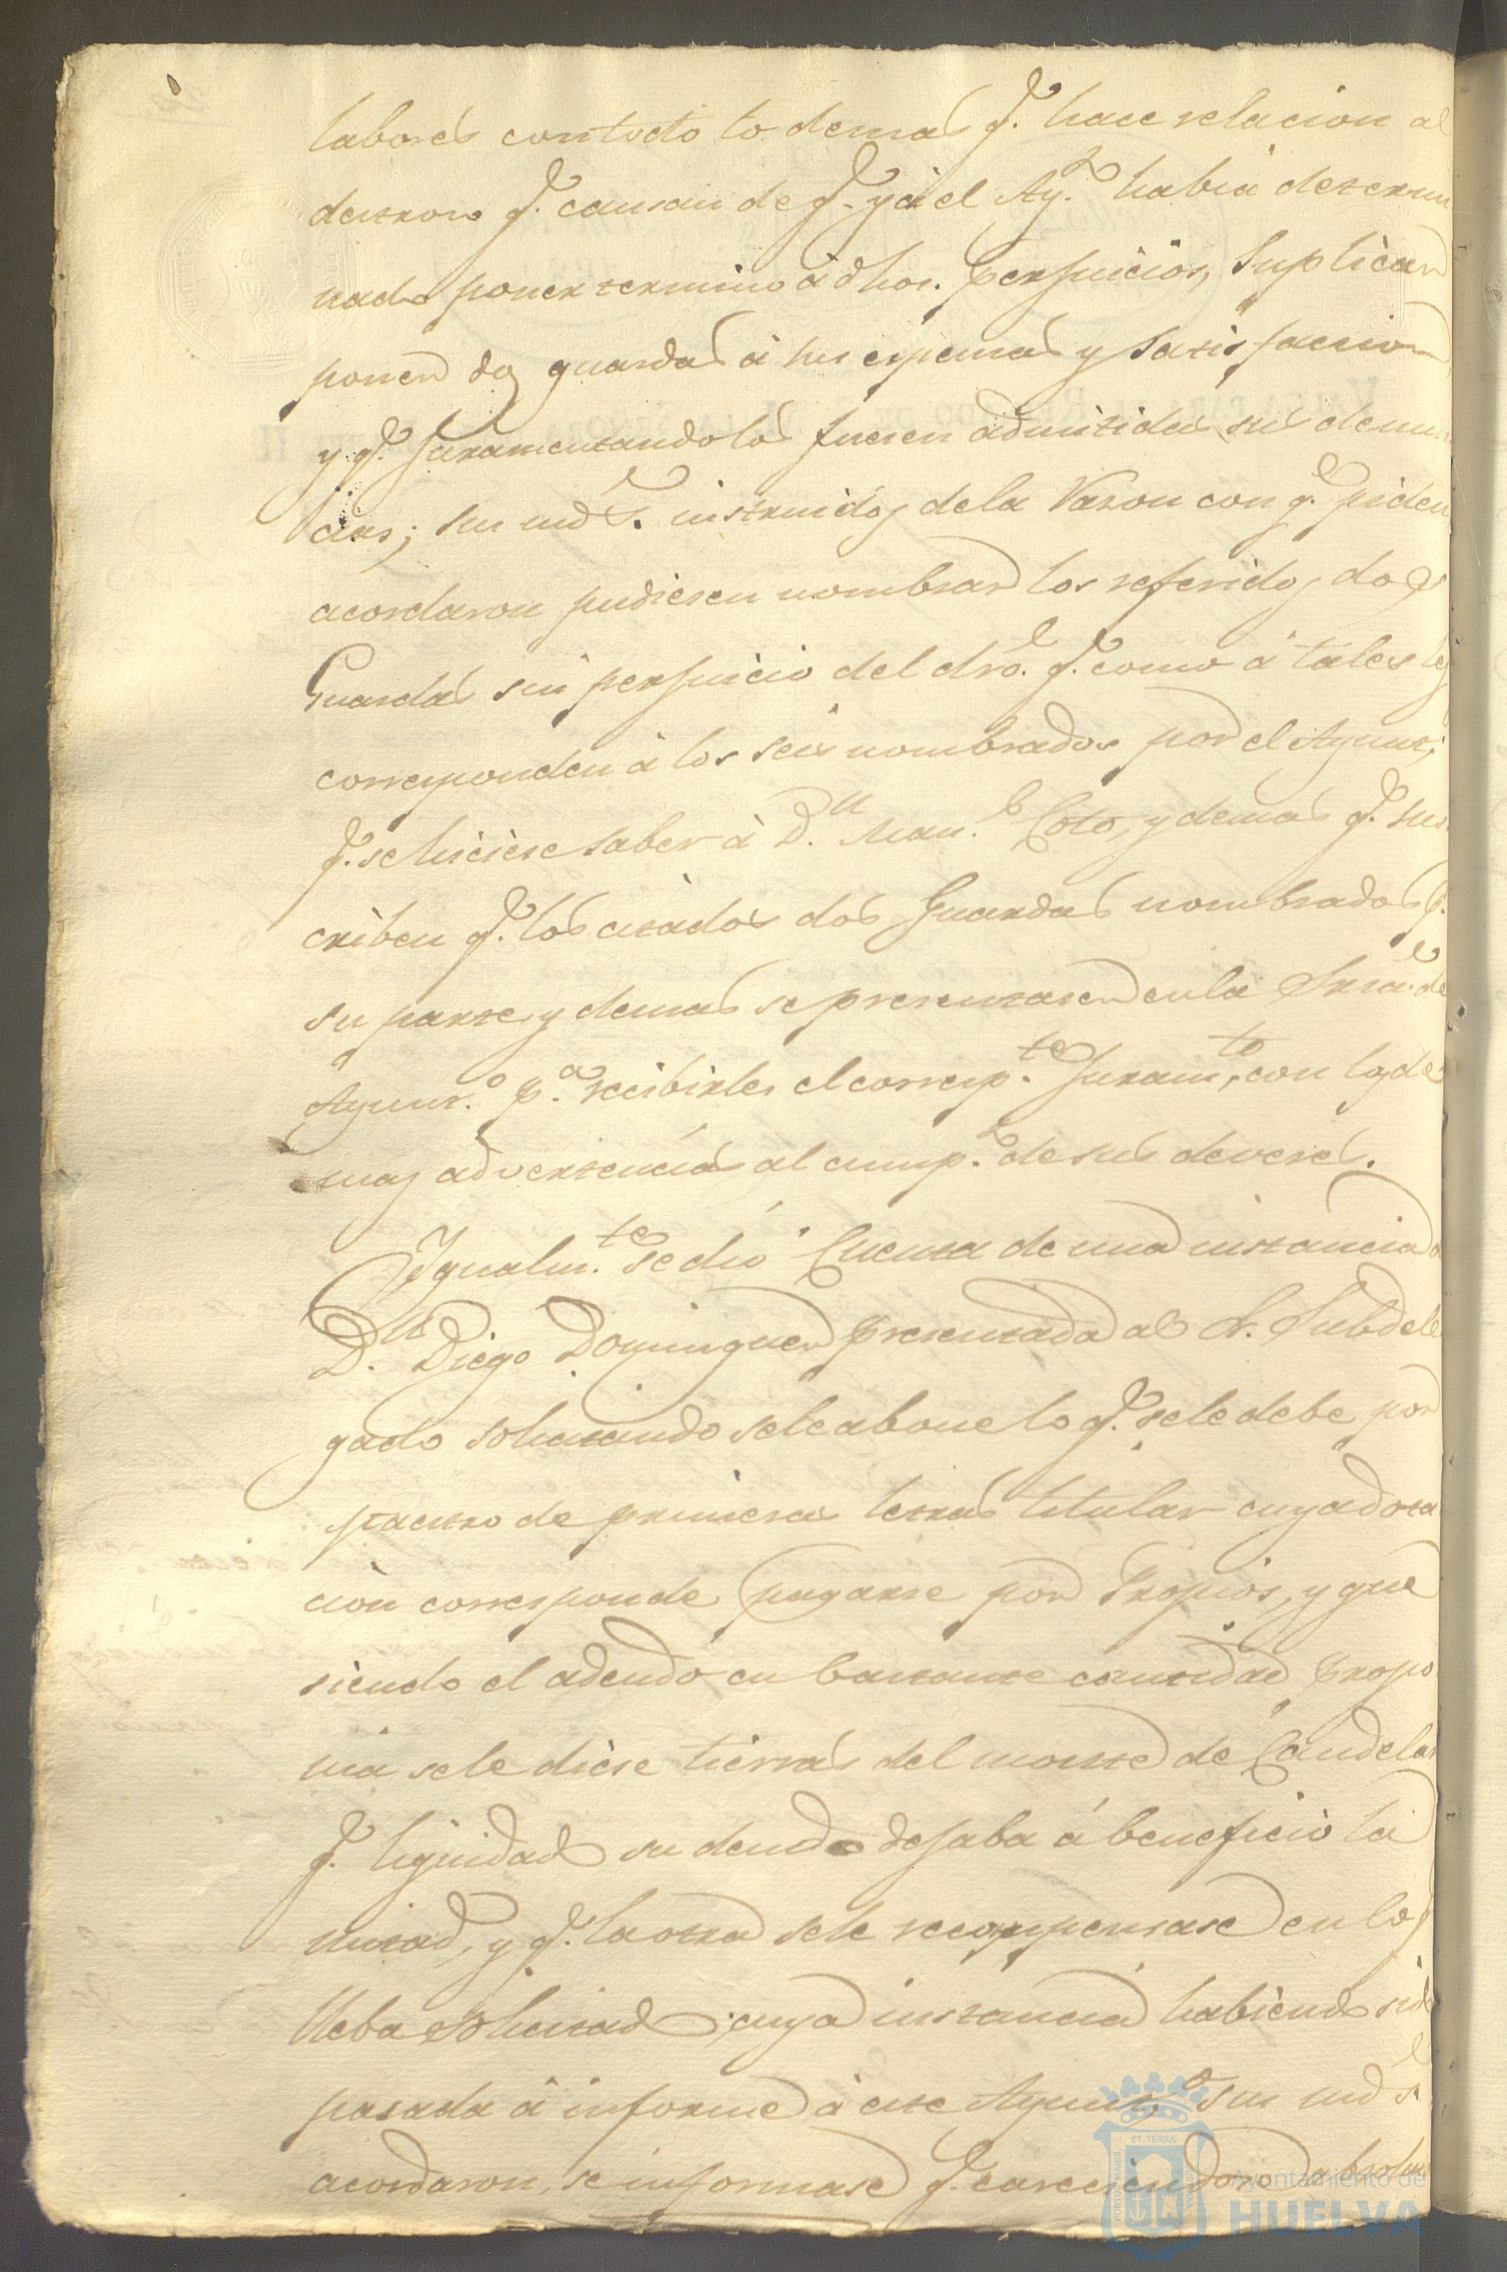 labores con todo lo demas q.e hace relacion al
destroso q.e causan de q.e ya el Ay.to habia determi
nado poner termino à dhos. perjuicios, suplican
ponen dos guardas à sus espensas y satisfaccion
y q.e juramentandolos fuesen admitidas sus denun
cias; sus mds. instruidos de la razon con q.e piden
acordaron pudiesen nombrar los referidos dos
Guardas sin perjuicio del dro. q.e como à tales les
corresponden à los seis nombrados por el Ayunt.
q.e se hiciese saber à D.n Man.l Coto, y demas q.e sus
criben q.e los citados dos Guardas nombrados p.r
su parte y demas se presentasen en la Sria. de
Ayunt.o p.a recibirles el corresp.te juram.to con los de
mas advertencias al cump.to de sus deveres.
Igualm.te se dió cuenta de una instancia de
D.n Diego Dominguez presentada al S. Subdele
gado solicitando se le abone lo q.e se le debe por
maestro de primeras letras titular cuya dota
ciòn corresponde pagarse por Propios, y que
siendo el adeudo en bastante cantidad propo
nia se le diese tierras del monte de Candelar
q.e liquidad su deuda dejaba á beneficio la
mitad, y q.e la otra se le recompensase en los
lleba solicitad; cuya instancia habiendo sido
pasada à informe à este Ayunt.o sus mds.
acordaron se informase q.e careciendo
Ayuntamiento de
HUELVA